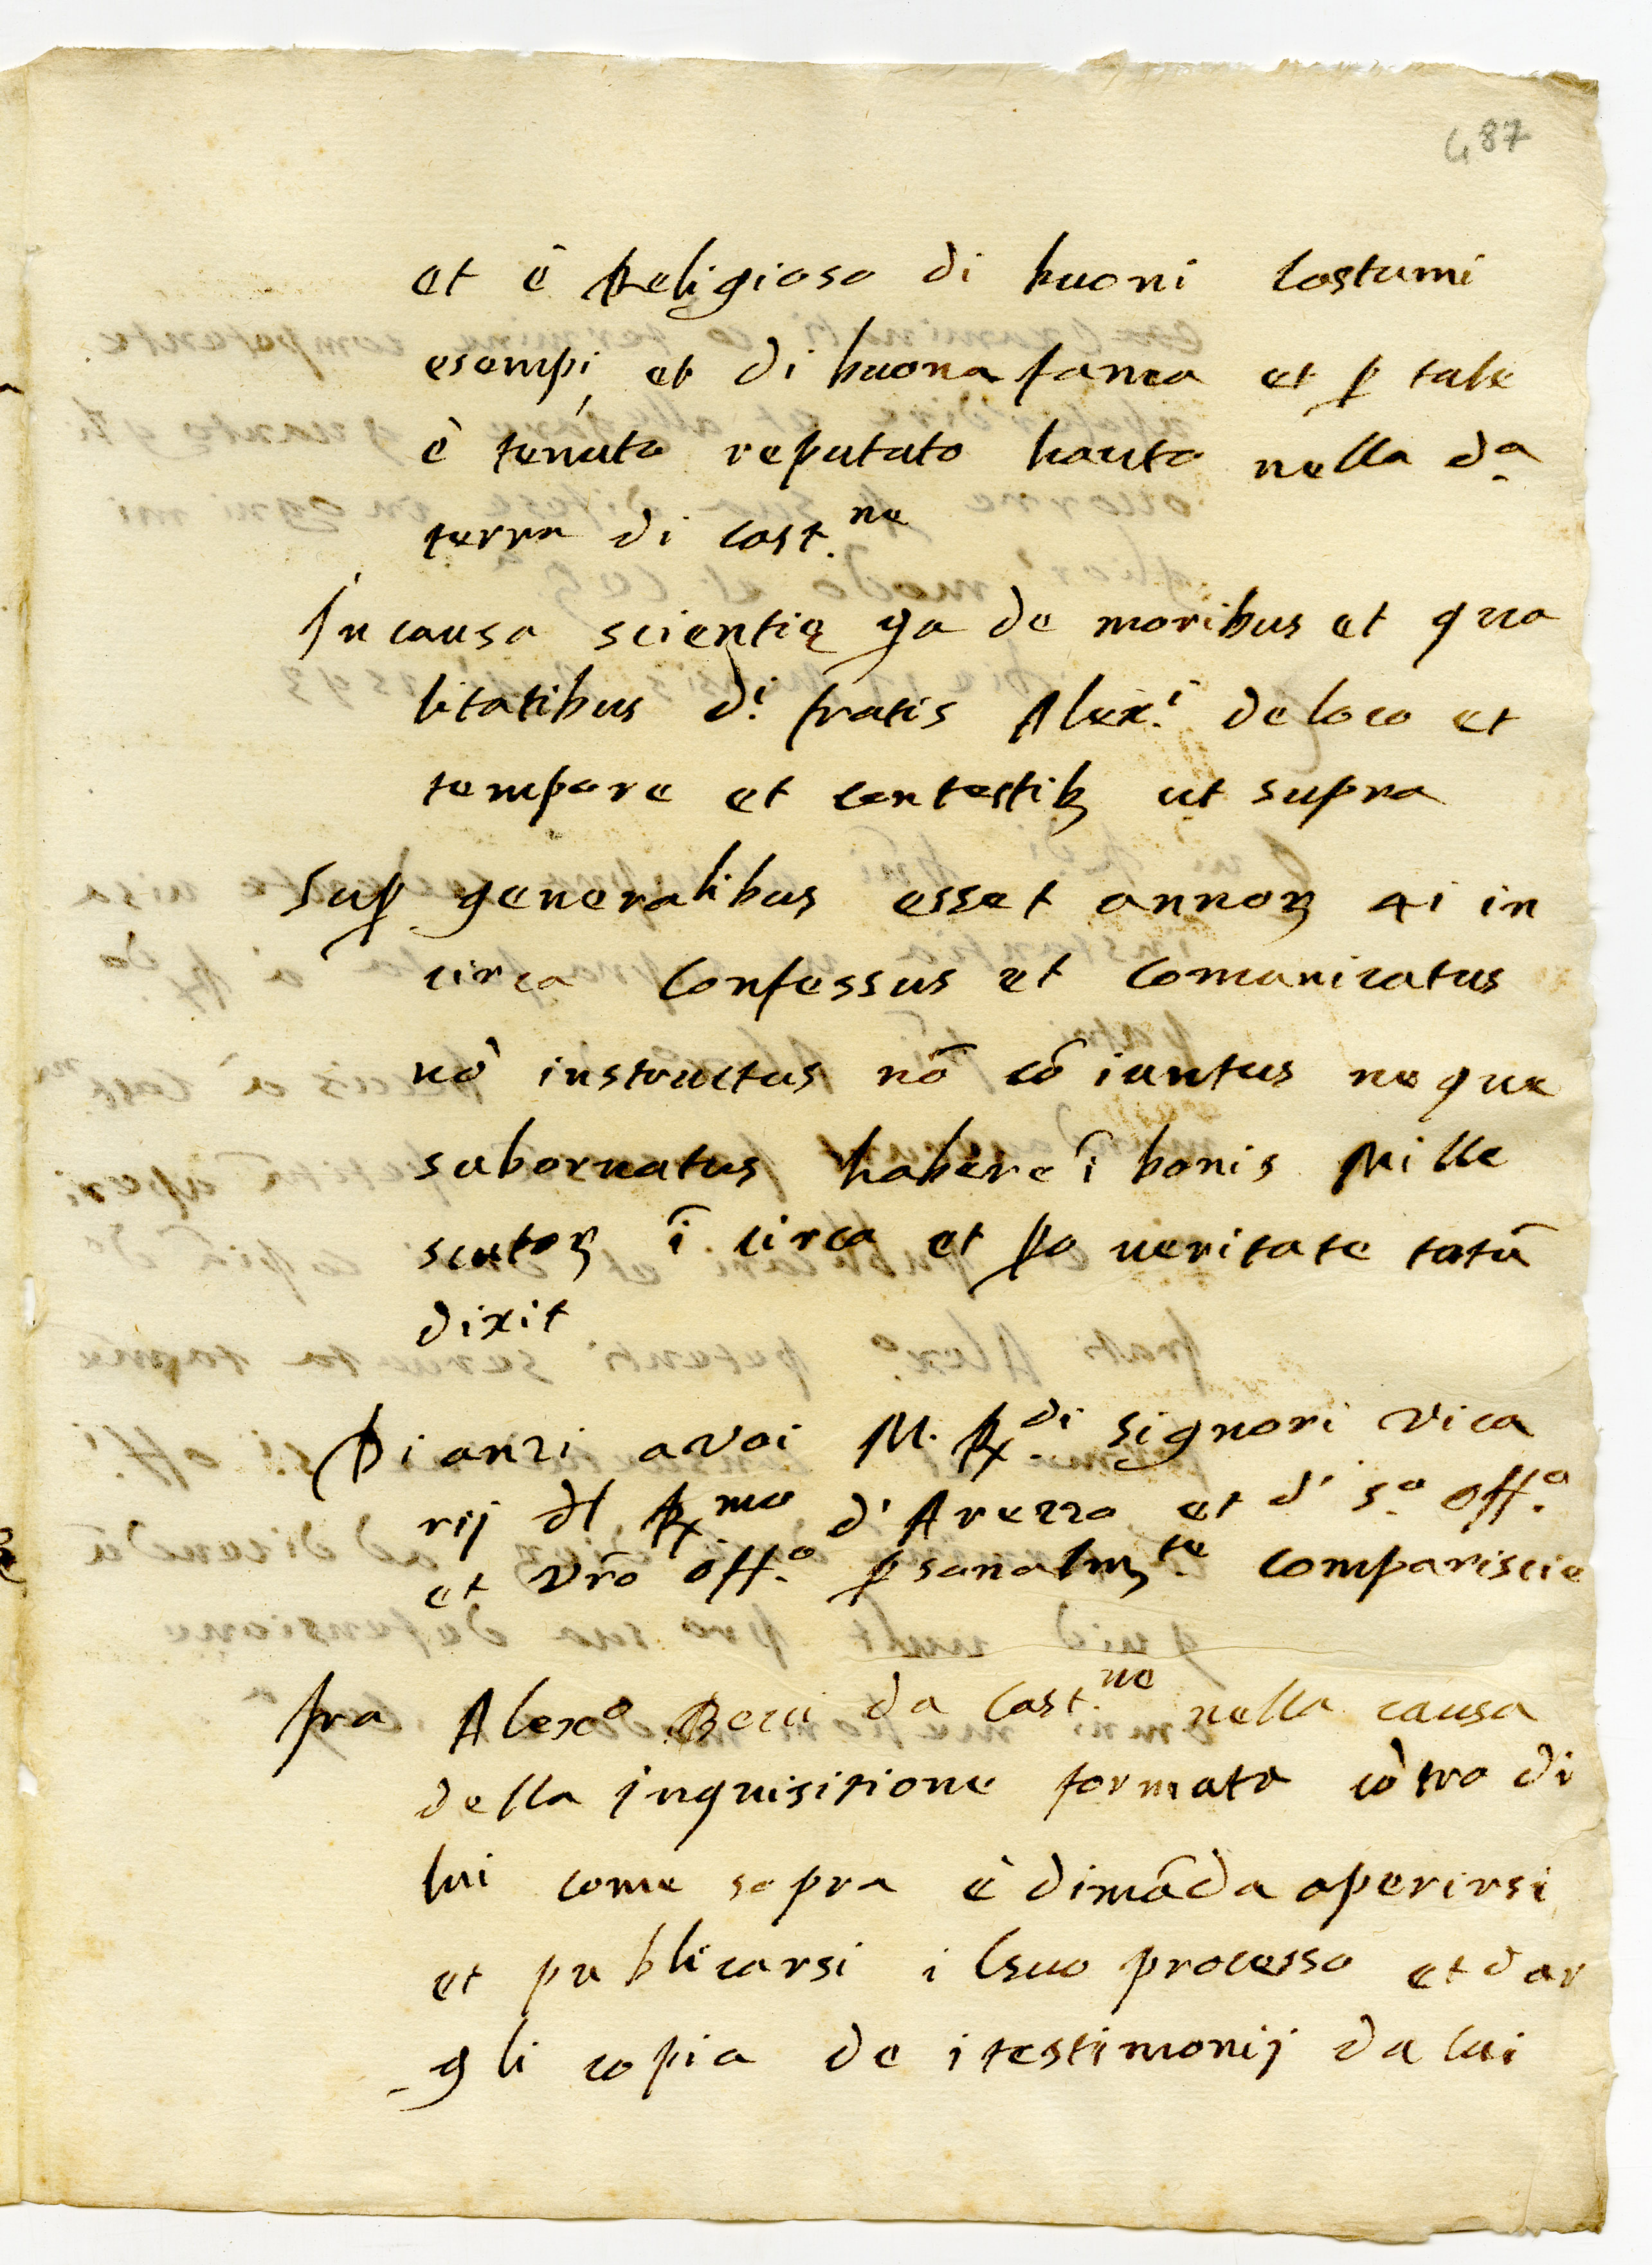 487
et è Religioso di buoni Costumi
esempi, et di buona fama et p̱ tale
è tenuto reputato hauto nella d.ª
terra di Cast.ne
In causa scientię q̱a de moribus et qua
litatibus d.i fratis Alex.i de loco et
tempore et contestibꝫ ut supra
Sup̱ generalibus esset annoꝝ 41 in
circa Confessus et Comunicatus
nō instructus nō cō iuntus neque
subornatus habere ī bonis Mille
scutoꝝ ī circa et p̱o ueritate tātū
dixit
Dianzi a Voi M. R.di Signori Vica
rij dl R.mo d'Arezzo et d' S.º Off.º
et Vr̄o Off.º p̱sonalmꝫte compariscie
fra Alex.º Beci da Cast.ne nella causa
della inquisitione formata cōtro di
lui come sopra è dimāda aperirsi
et publicarsi il suo processo et dar
gli copia de i testimonij da lui